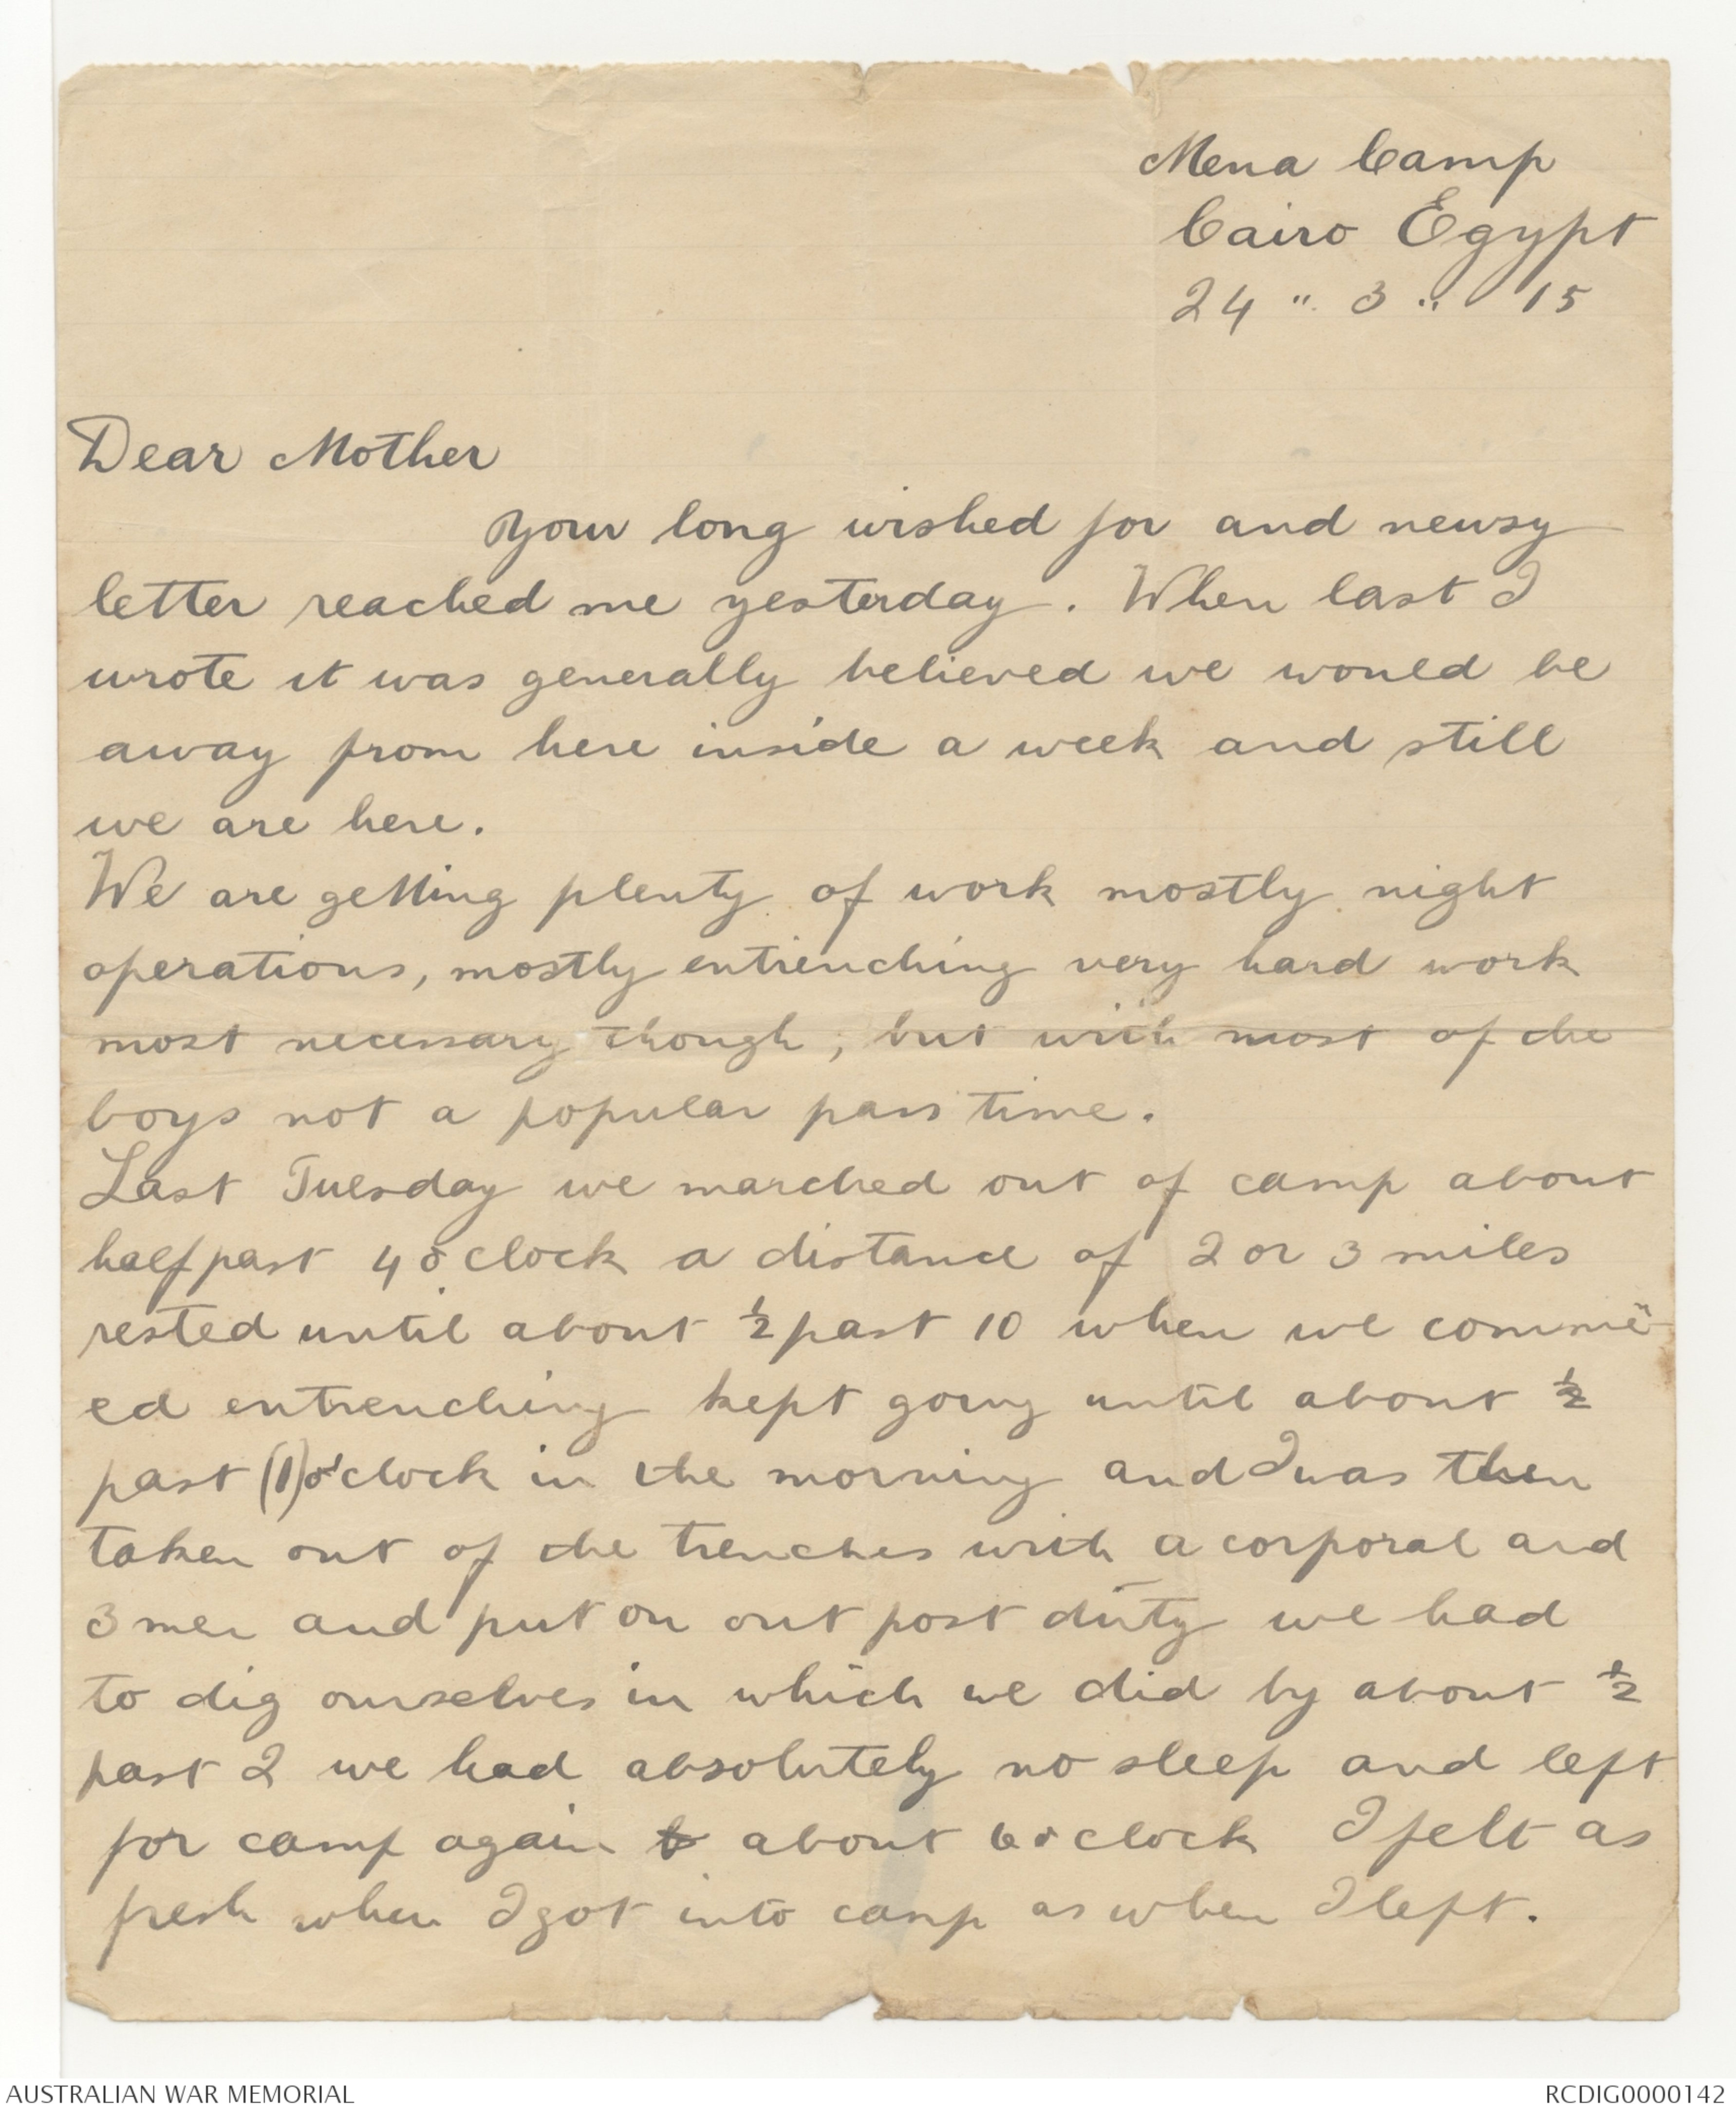 Mena Camp
Cairo Egypt
24 " 3 " 15
Dear Mother
Your long wished for and newsy
letter reached me yesterday. When last I
wrote it was generally believed we would be
away from here inside a week and still
we are here.
We are getting plenty of work mostly night
operations, mostly entrenching very hard work
most necessary though; but with most of the
boys not a popular pass time.
Last Tuesday we marched out of camp about
half past 4 o clock a distance of 2 or 3 miles
rested until about ½ past 10 when we comme-
ed entrenching kept going until about ½
past (1) o'clock in the morning and I was then
taken out of the trenches with a corporal and
3 men and put on out post duty we had
to dig ourselves in which we did by about ½
past 2 we had absolutely no sleep and left
for camp again about 6 o clock I felt as
fresh when I got into camp as when I left.
AUSTRALIAN WAR MEMORIAL
RCDIG0000142